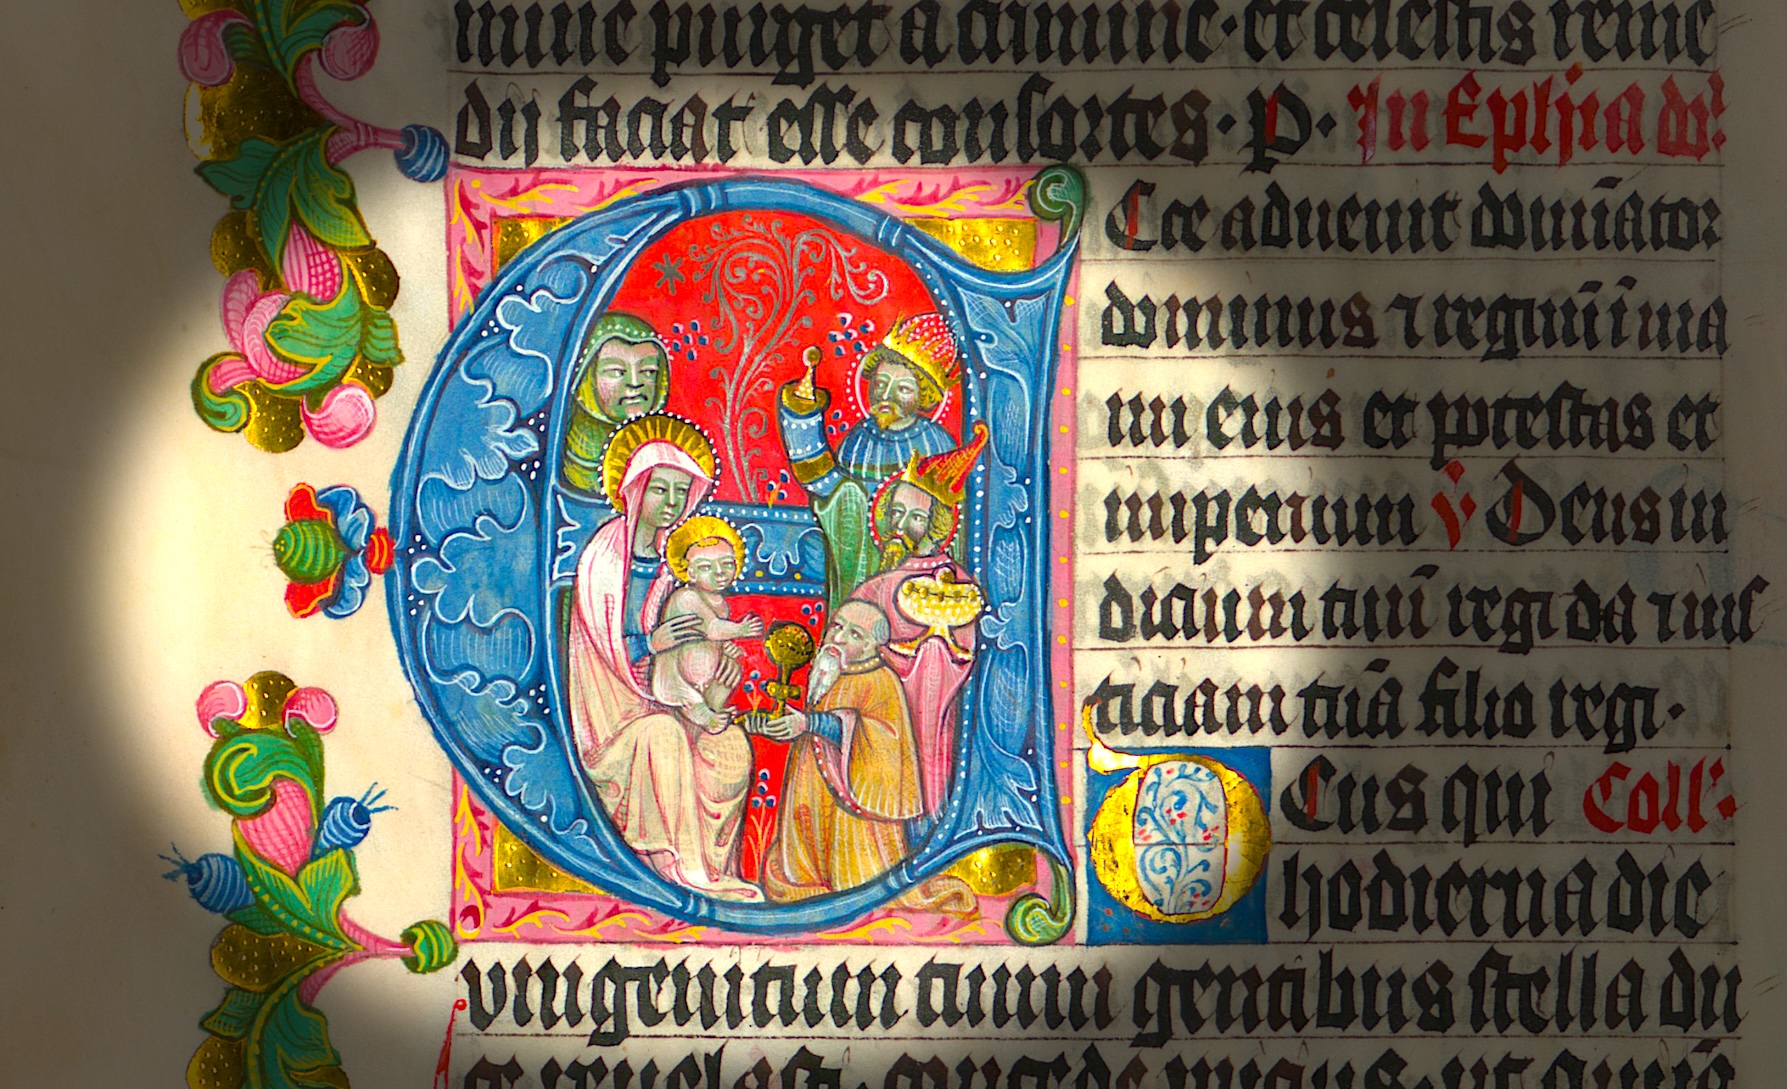 mine purget a crimine· et celestis reme
dij faciat esse consortes· P· In Ephīa dn̄i
Ecce aduenit domīator
dominus ⁊ regnū ī ma
nu eius et potestas et
imperium v̄ Deus iu
dicium tuū regi da ⁊ ius
ticiam tuā filio regi·
Deus qui Coll'·
hodierna die
vnigenitum tuum gentibus stella du
ce reuelasti· concede